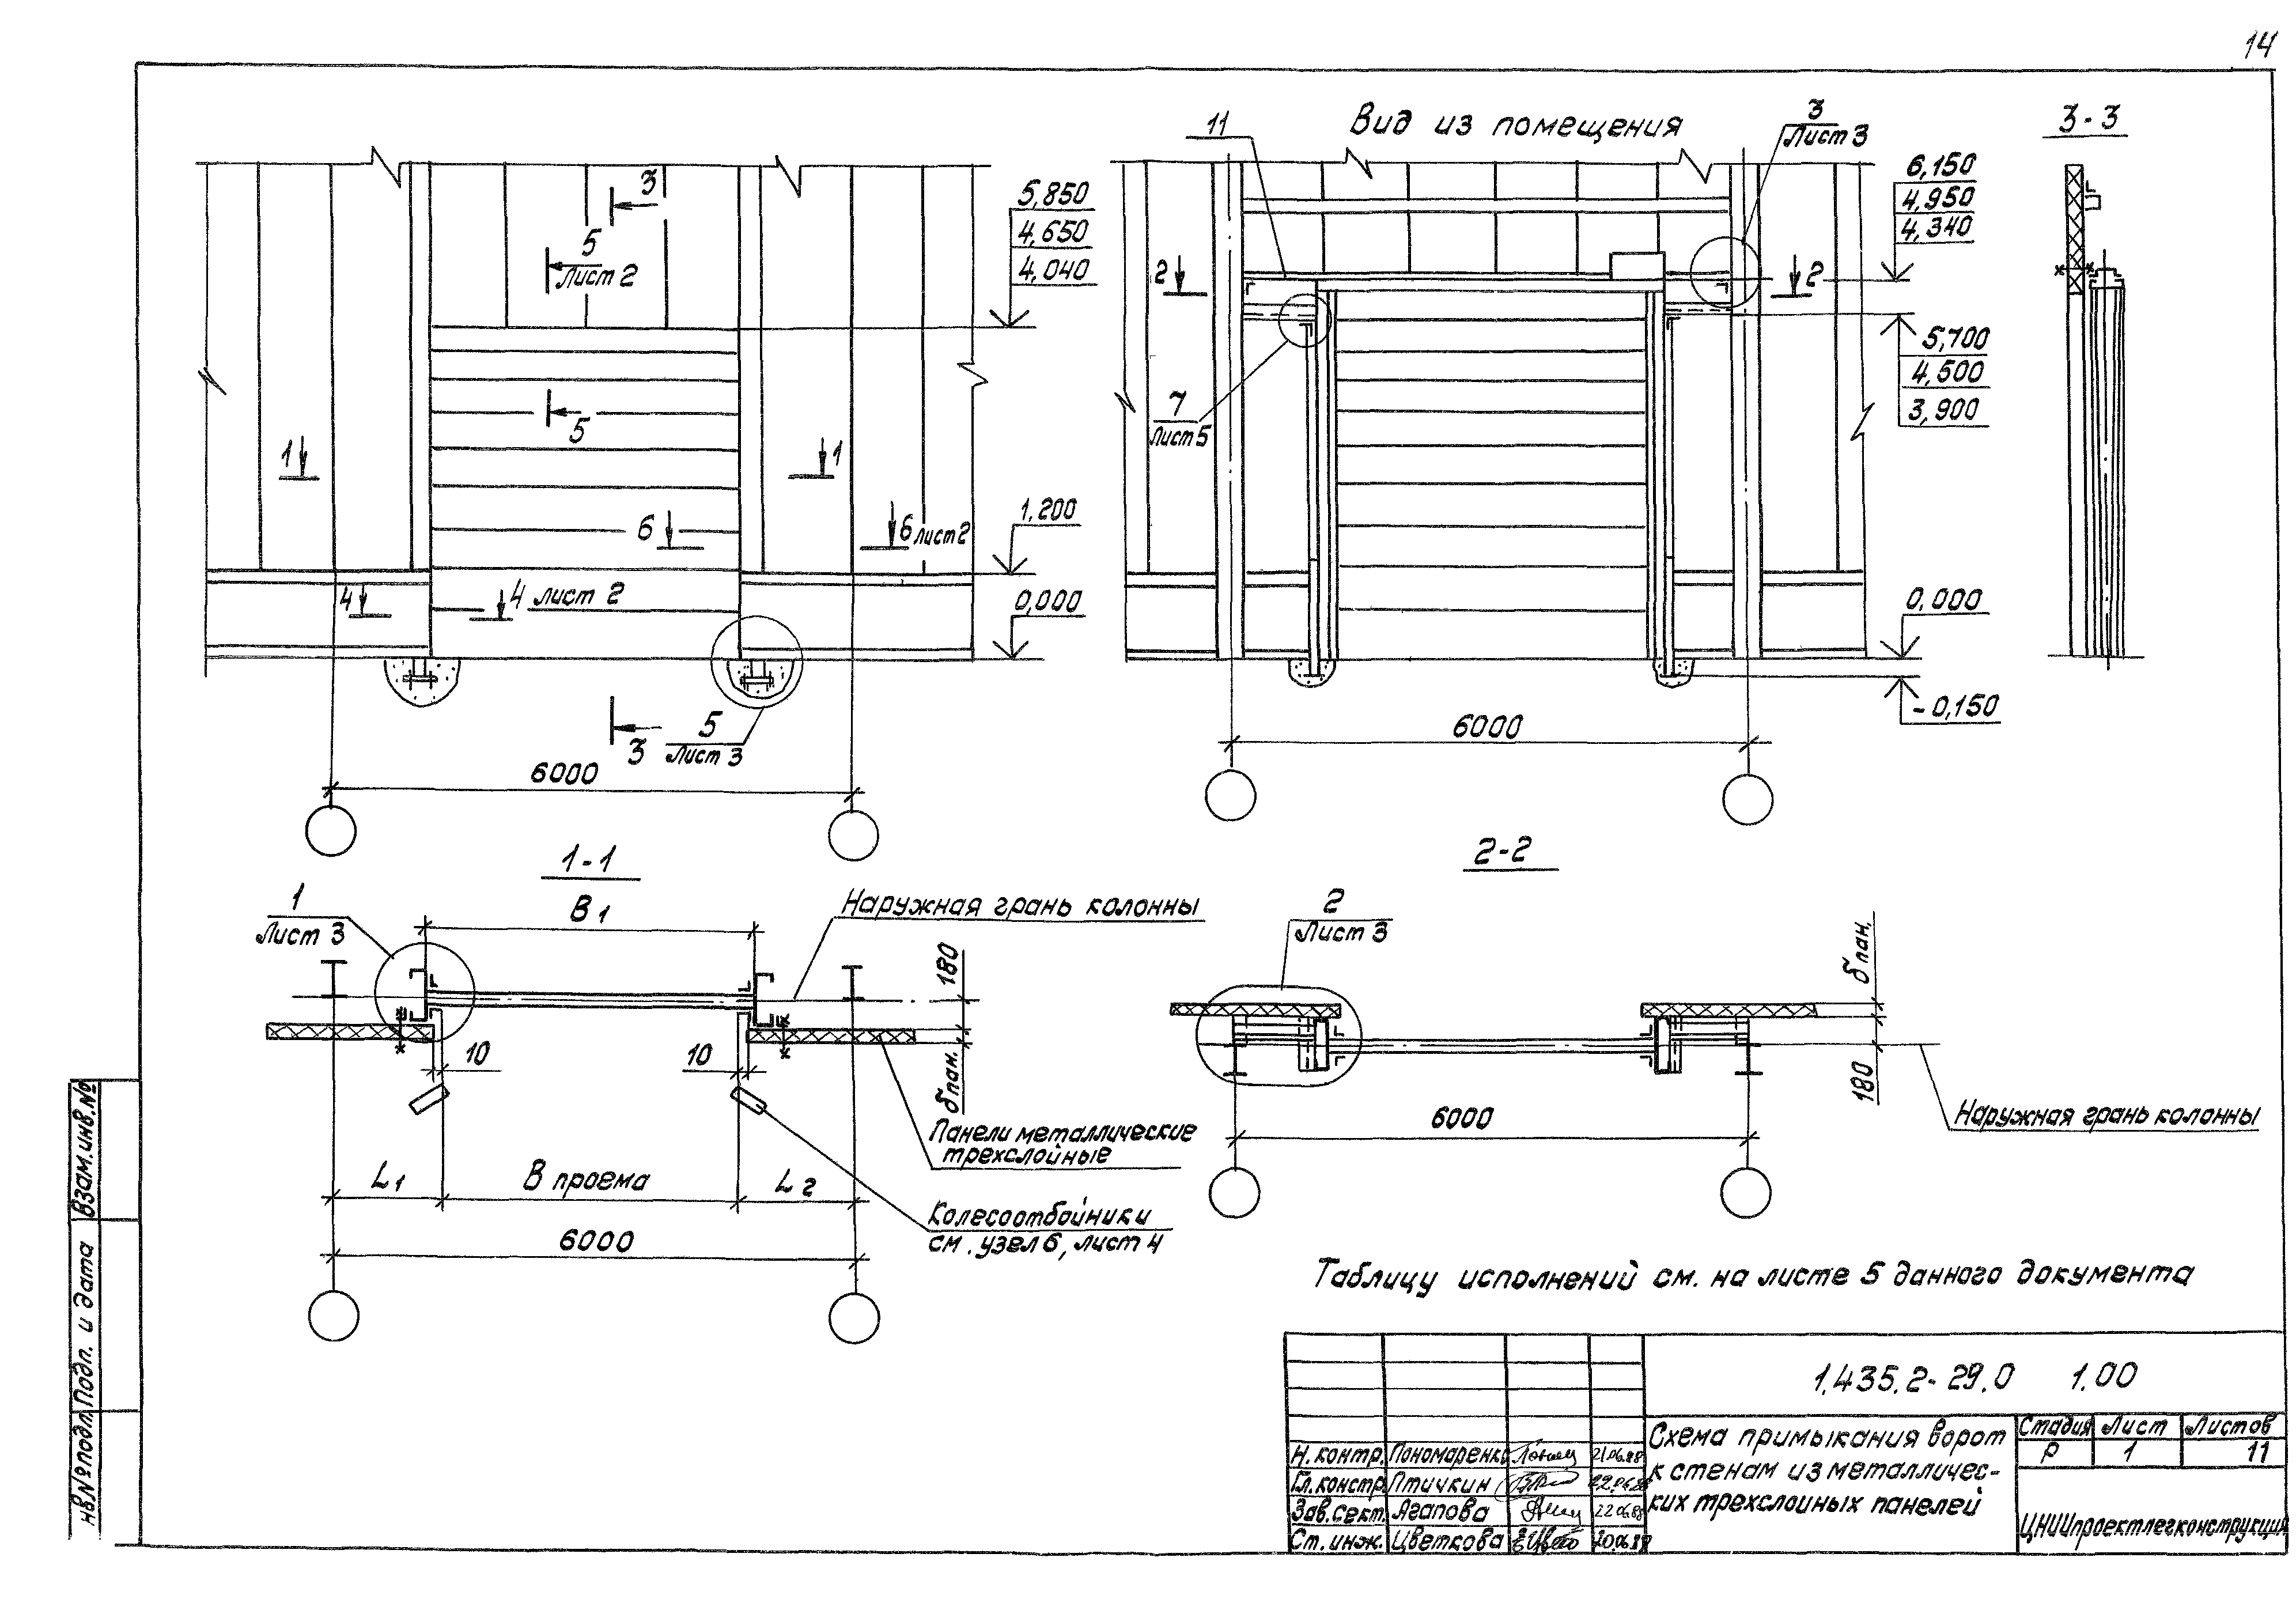 14
3
5
Лист 2
5
1
1
6
6 лист 2
4
4 лист 2
5,850
4,650
4,040
1,200
0,000
3
5
Лист 3
6000
Вид из помещения
11
3
Лист 3
2
2
7
Лист 5
6,150
4,950
4,340
5,700
4,500
3,900
0,000
- 0,150
6000
3-3
1-1
1
Лист 3
В1
Наружная грань колонны
180
10
10
δпан.
Панели металлические
трехслойные
L1
В проема
L2
Колесоотбойники
см. узел 6, лист 4
6000
2-2
2
Лист 3
δпан.
180
6000
Наружная грань колонны
Таблицу исполнений см. на листе 5 данного документа
1.435.2-29.0 1.00
Схема примыкания ворот
к стенам из металличес-
ких трехслойных панелей
Стадия Лист Листов
Р 1 11
ЦНИИпроектлегконструкция
Н. контр. Пономаренко 21.06.88
Гл. констр. Птичкин 22.06.88
Зав. сект. Агапова 22.06.88
Ст. инж. Цветкова 20.06.88
Взам. инв. №
Подп. и дата
нв № подл.